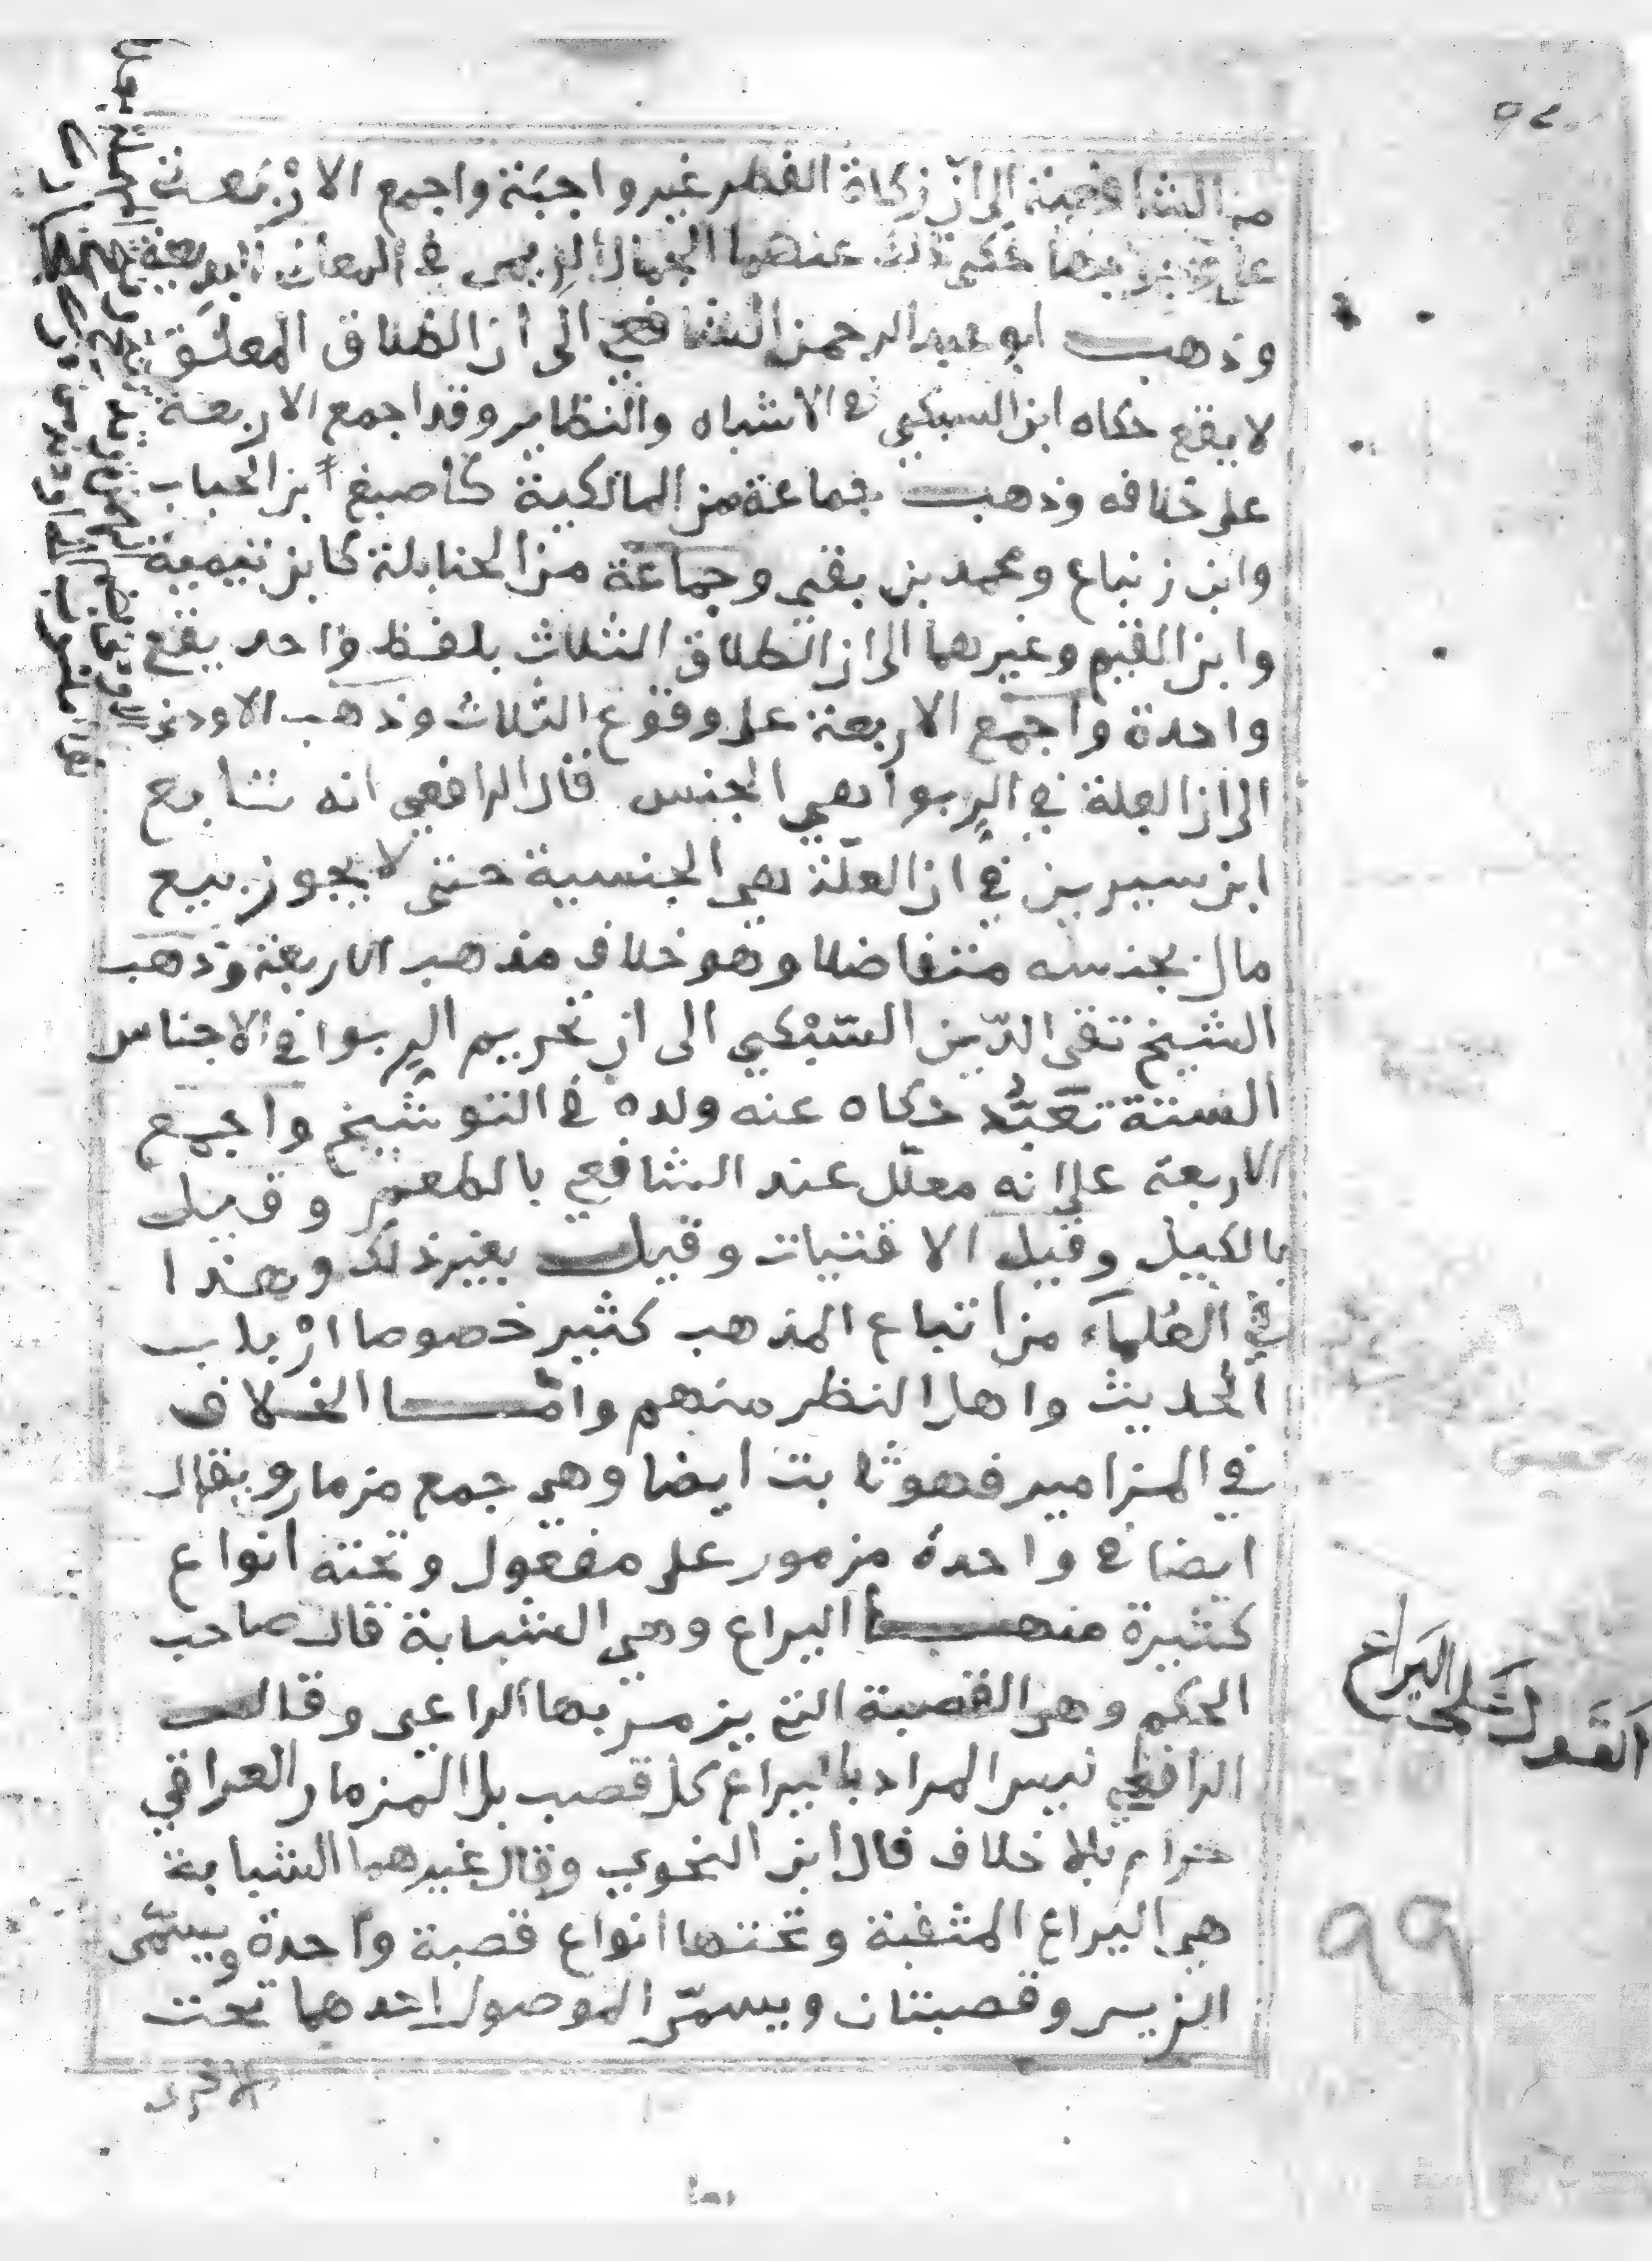 من الشافعية الى ان زكاة الفطر غير واجبة واجمع الارْبَعة
على وجوبها حكى ذلك عنهما الجمال الريمى فى المعانى البديعة
وذهب ابو عبد الرحمن الشافعي الى ان الطلاق المعلّق
لا يقع حكاه ابن السبكي في الاشباه والنظاير وقد اجمع الاربعة
على خلافه وذهب جماعة من المالكية كاصبغ ابن الحباب
وابن زنباع ومحمد بن بقي وجماعة من الحنابلة كابن تيمية
وابن القيم وغيرهما الى ان الطلاق الثلاث بلفظ واحد يقع
واحدة واجمع الاربعة على وقوع الثلاث وذهب الاودني
الى ان العلة في الرِبوا هي الجنس قال الرافعي انه تابع
ابن سيرين في ان العلّة هي الجنسية حتى لا يجوز بيع
مال بجنسه متفاضلا وهو خلاف مذهب الاربعة وذهب
الشيخ تقي الدّين السّبْكي الى ان تحريم الرِبوا في الاجناس
الستة تعَبُّد حكاه عنه ولده في التوشيح واجمع
الاربعة على انه معلّل عند الشافعي بالطعم وقيل
بالكيل وقيل الاقتيات وقيل بغير ذلك وهذا
في العُلماَء من اتباع المذهب كثير خصوصا ارْباب
الحديث واهل النظر منهم وامّا الخلاف
في المزامير فهو ثابت ايضا وهي جمع مزمار ويقال
ايضا في واحدة مزمور على مفعول وتحته انواع
كثيرة منها اليراع وهي الشبابة قال صاحب
المحكم وهي القصبة التي يزمر بها الراعي وقال
الرافعي ليس المراد باليراع كل قصب بل المزمار العراقي
حرام بلا خلاف قال ابن النحوي وقال غيرهما الشبابة
هي اليراع المثقبة وتحتها انواع قصبة واحدة ويسمّى
الزير وقصبتان ويسمّى الموصول احدهما تحت
الاخرى
اَلقَول عَلى اليَراع
99